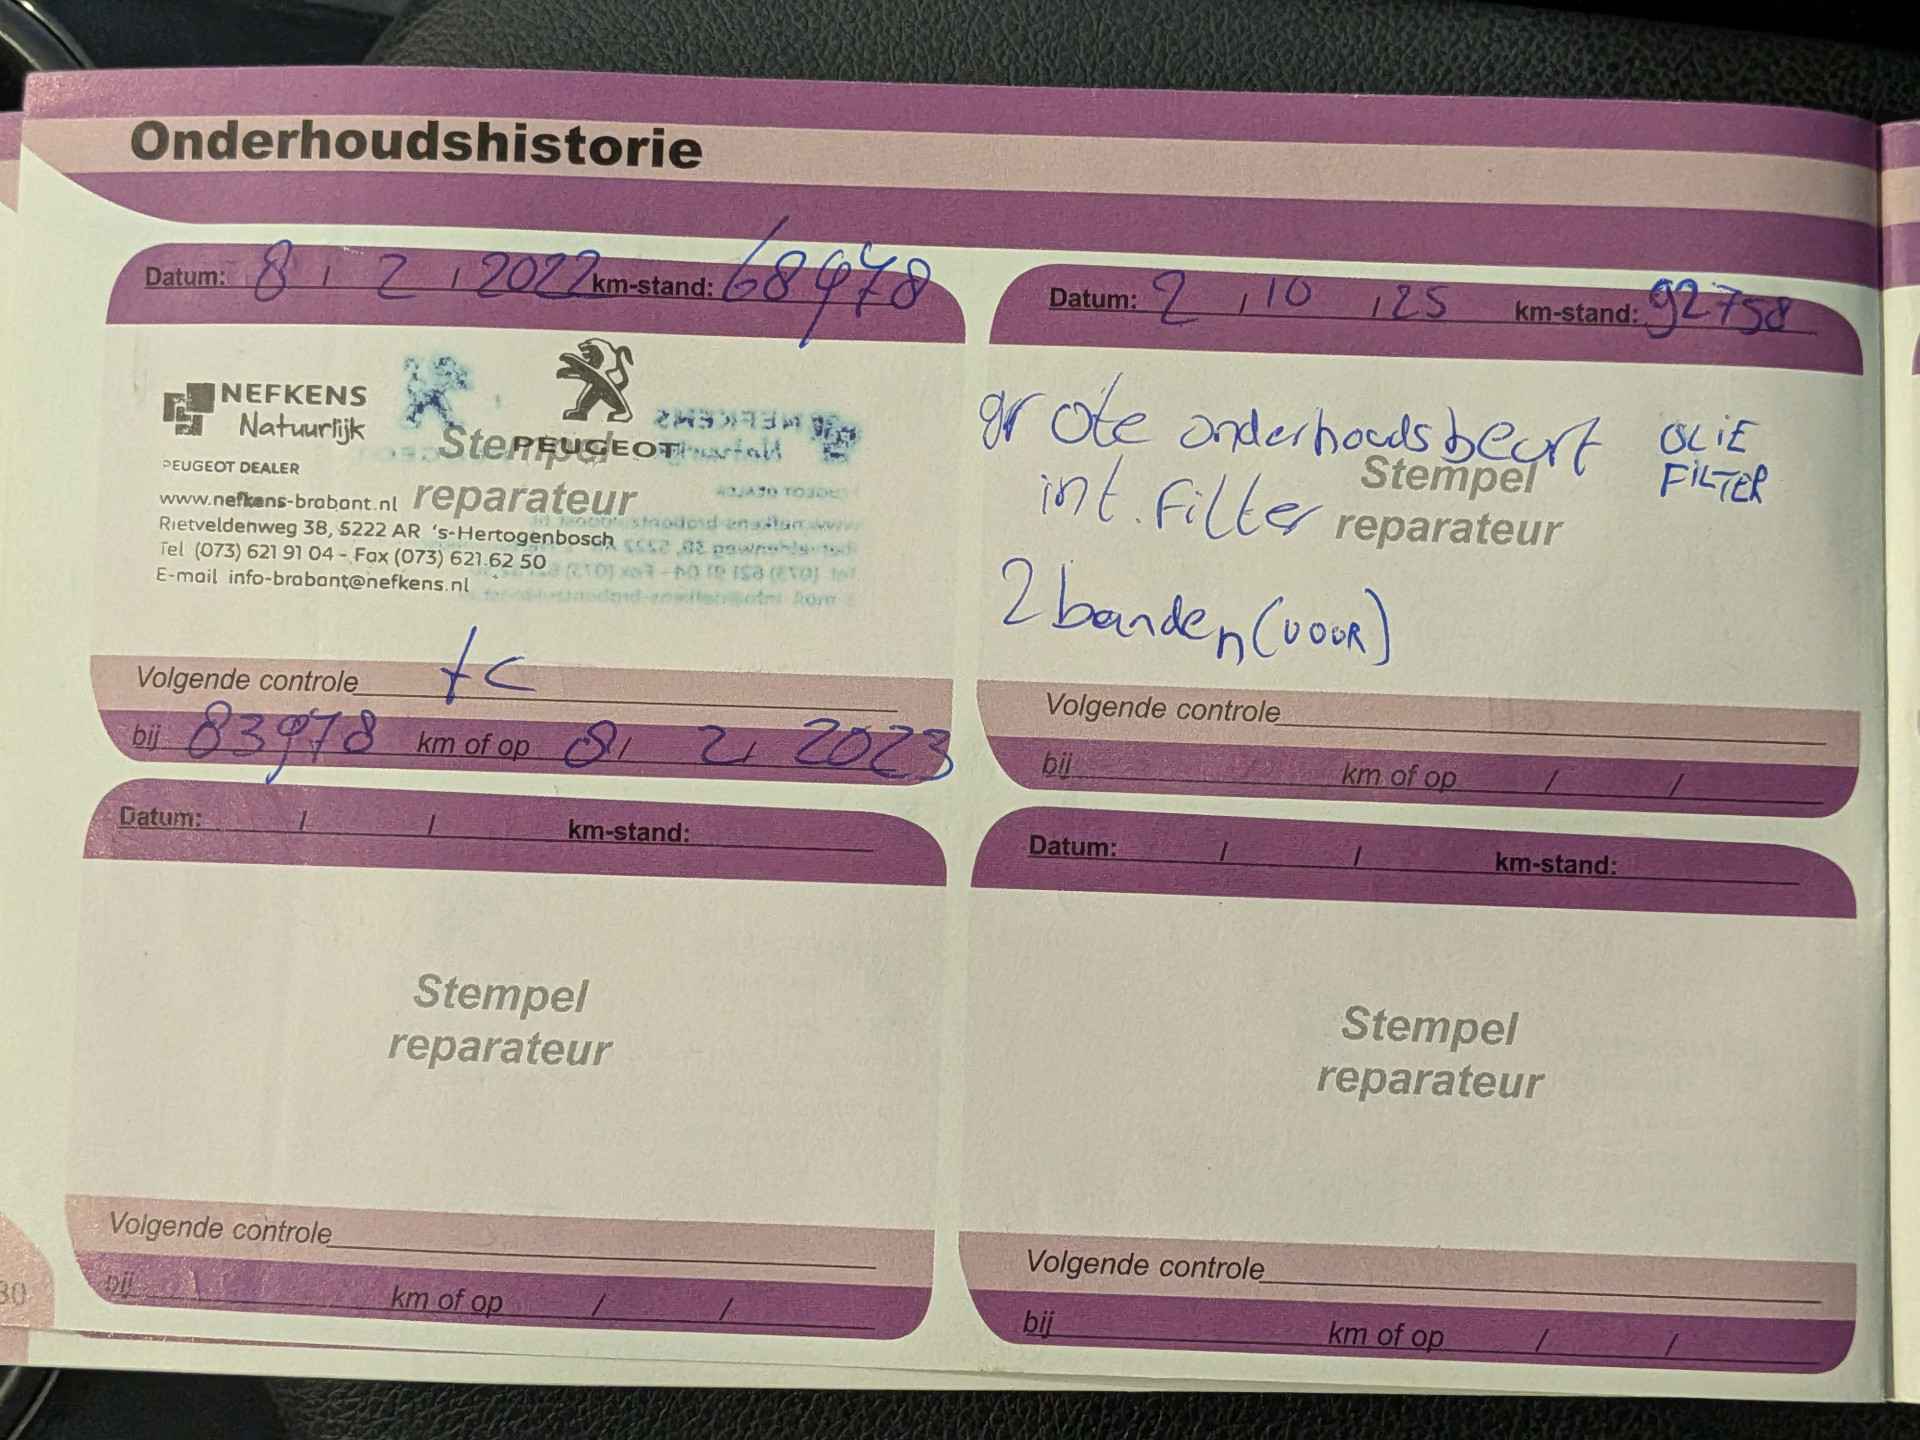 Onderhoudshistorie
Datum: 8 / 2 / 2022 km-stand: 68978
NEFKENS
Natuurlijk
PEUGEOT
PEUGEOT DEALER
Stempel
reparateur
www.nefkens-brabant.nl
Rietveldenweg 38, 5222 AR 's-Hertogenbosch
Tel (073) 621 91 04 - Fax (073) 621.62 50
E-mail info-brabant@nefkens.nl
Volgende controle tc
bij 83978 km of op 8 / 2 / 2023
Datum: 2 / 10 / 25 km-stand: 92758
grote onderhoudsbeurt OLIE
FILTER
int. Filter
Stempel
reparateur
2 banden (VOOR)
Volgende controle
bij km of op / /
Datum: / / km-stand:
Stempel
reparateur
Volgende controle
bij km of op / /
Datum: / / km-stand:
Stempel
reparateur
Volgende controle
bij km of op / /
30